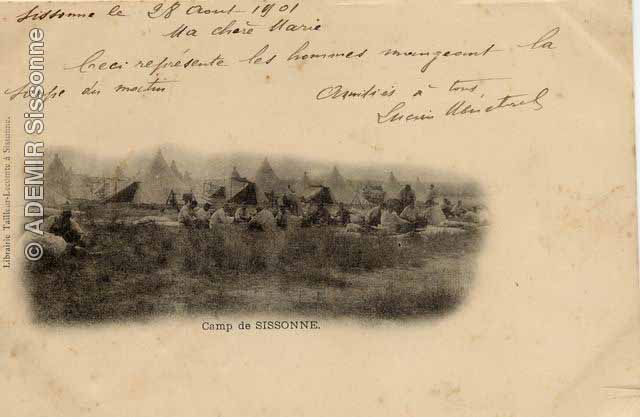 Sissonne le 28 Aout 1901
Ma chère Marie
Ceci représente les hommes mangeant la
soupe du matin
Amitiés à tous
Lucien
Librairie Tailleur-Lecomte à Sissonne.
© ADEMIR Sissonne ©
Camp de SISSONNE.